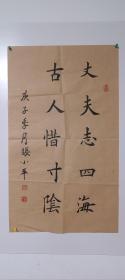 丈夫志四海
古人惜寸陰
庚子季月張小平